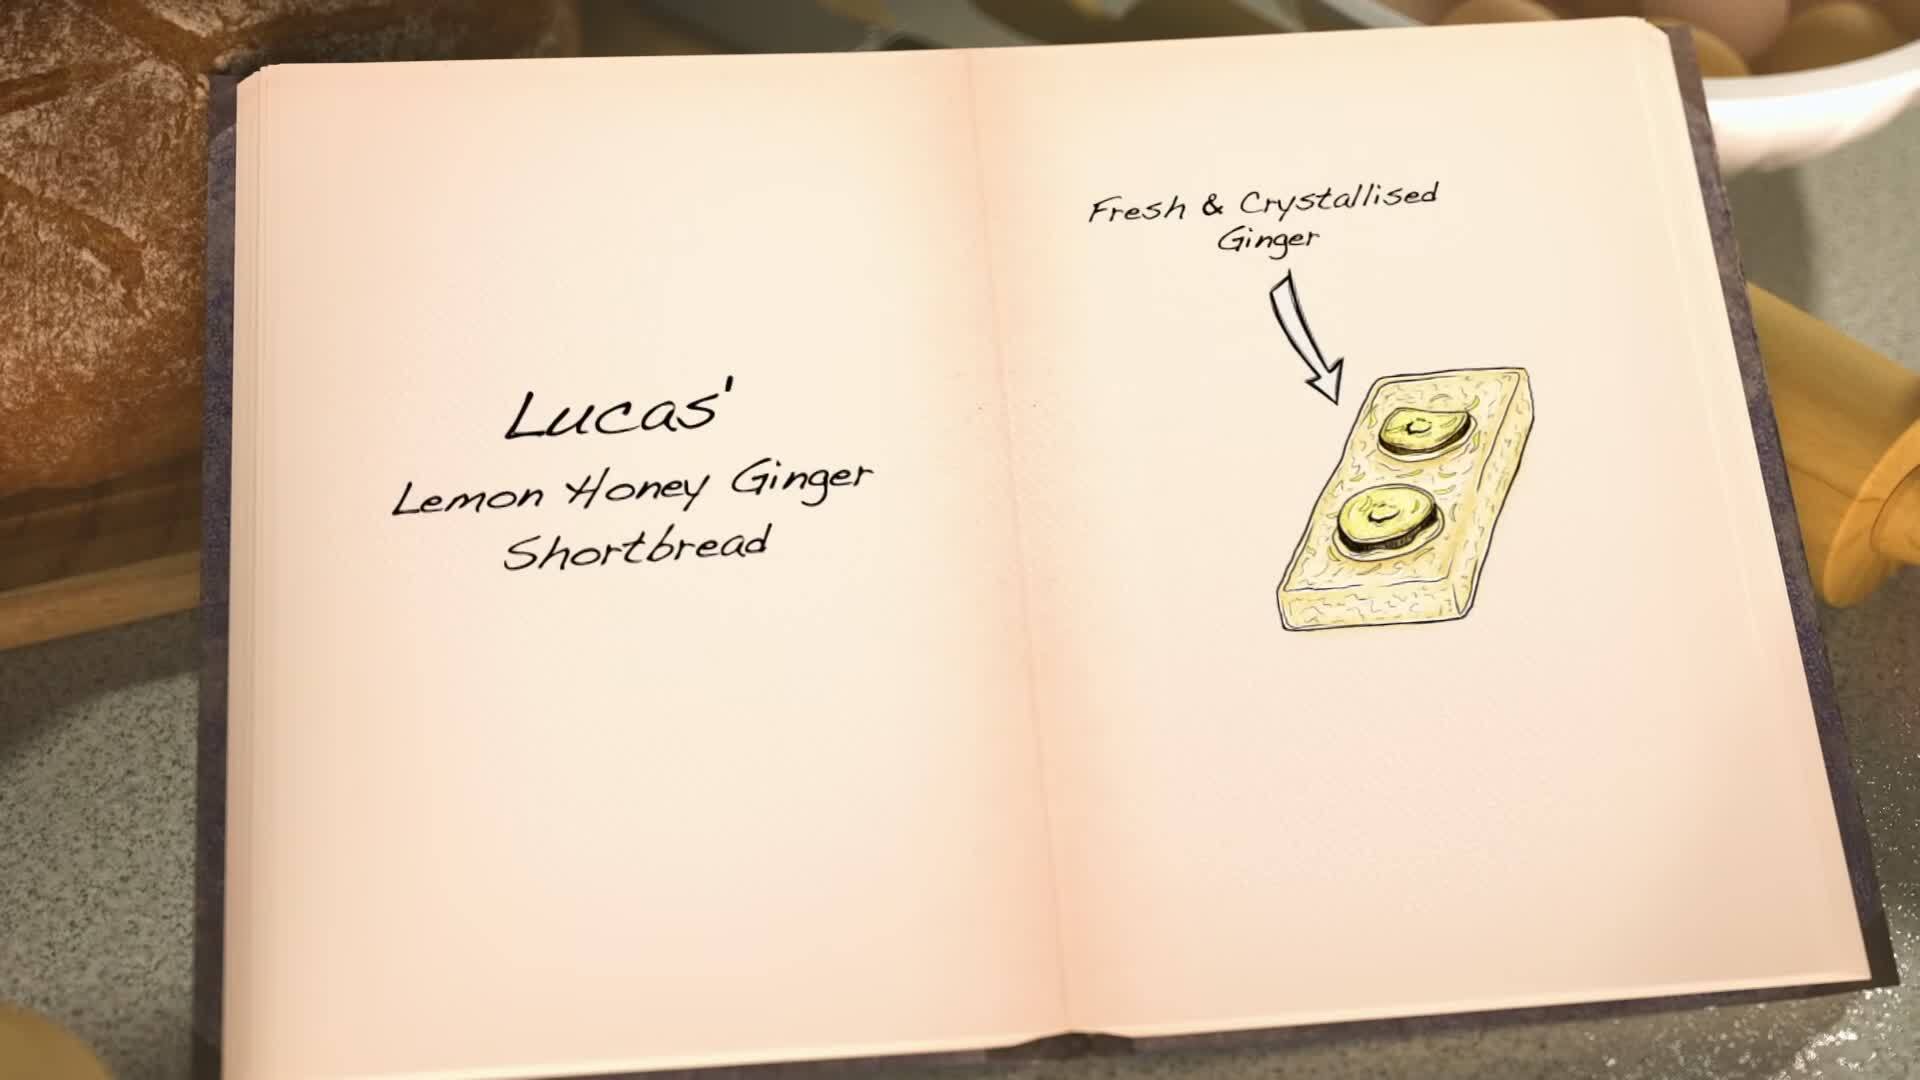 Lucas'
Lemon Honey Ginger
Shortbread
Fresh & Crystallised
Ginger